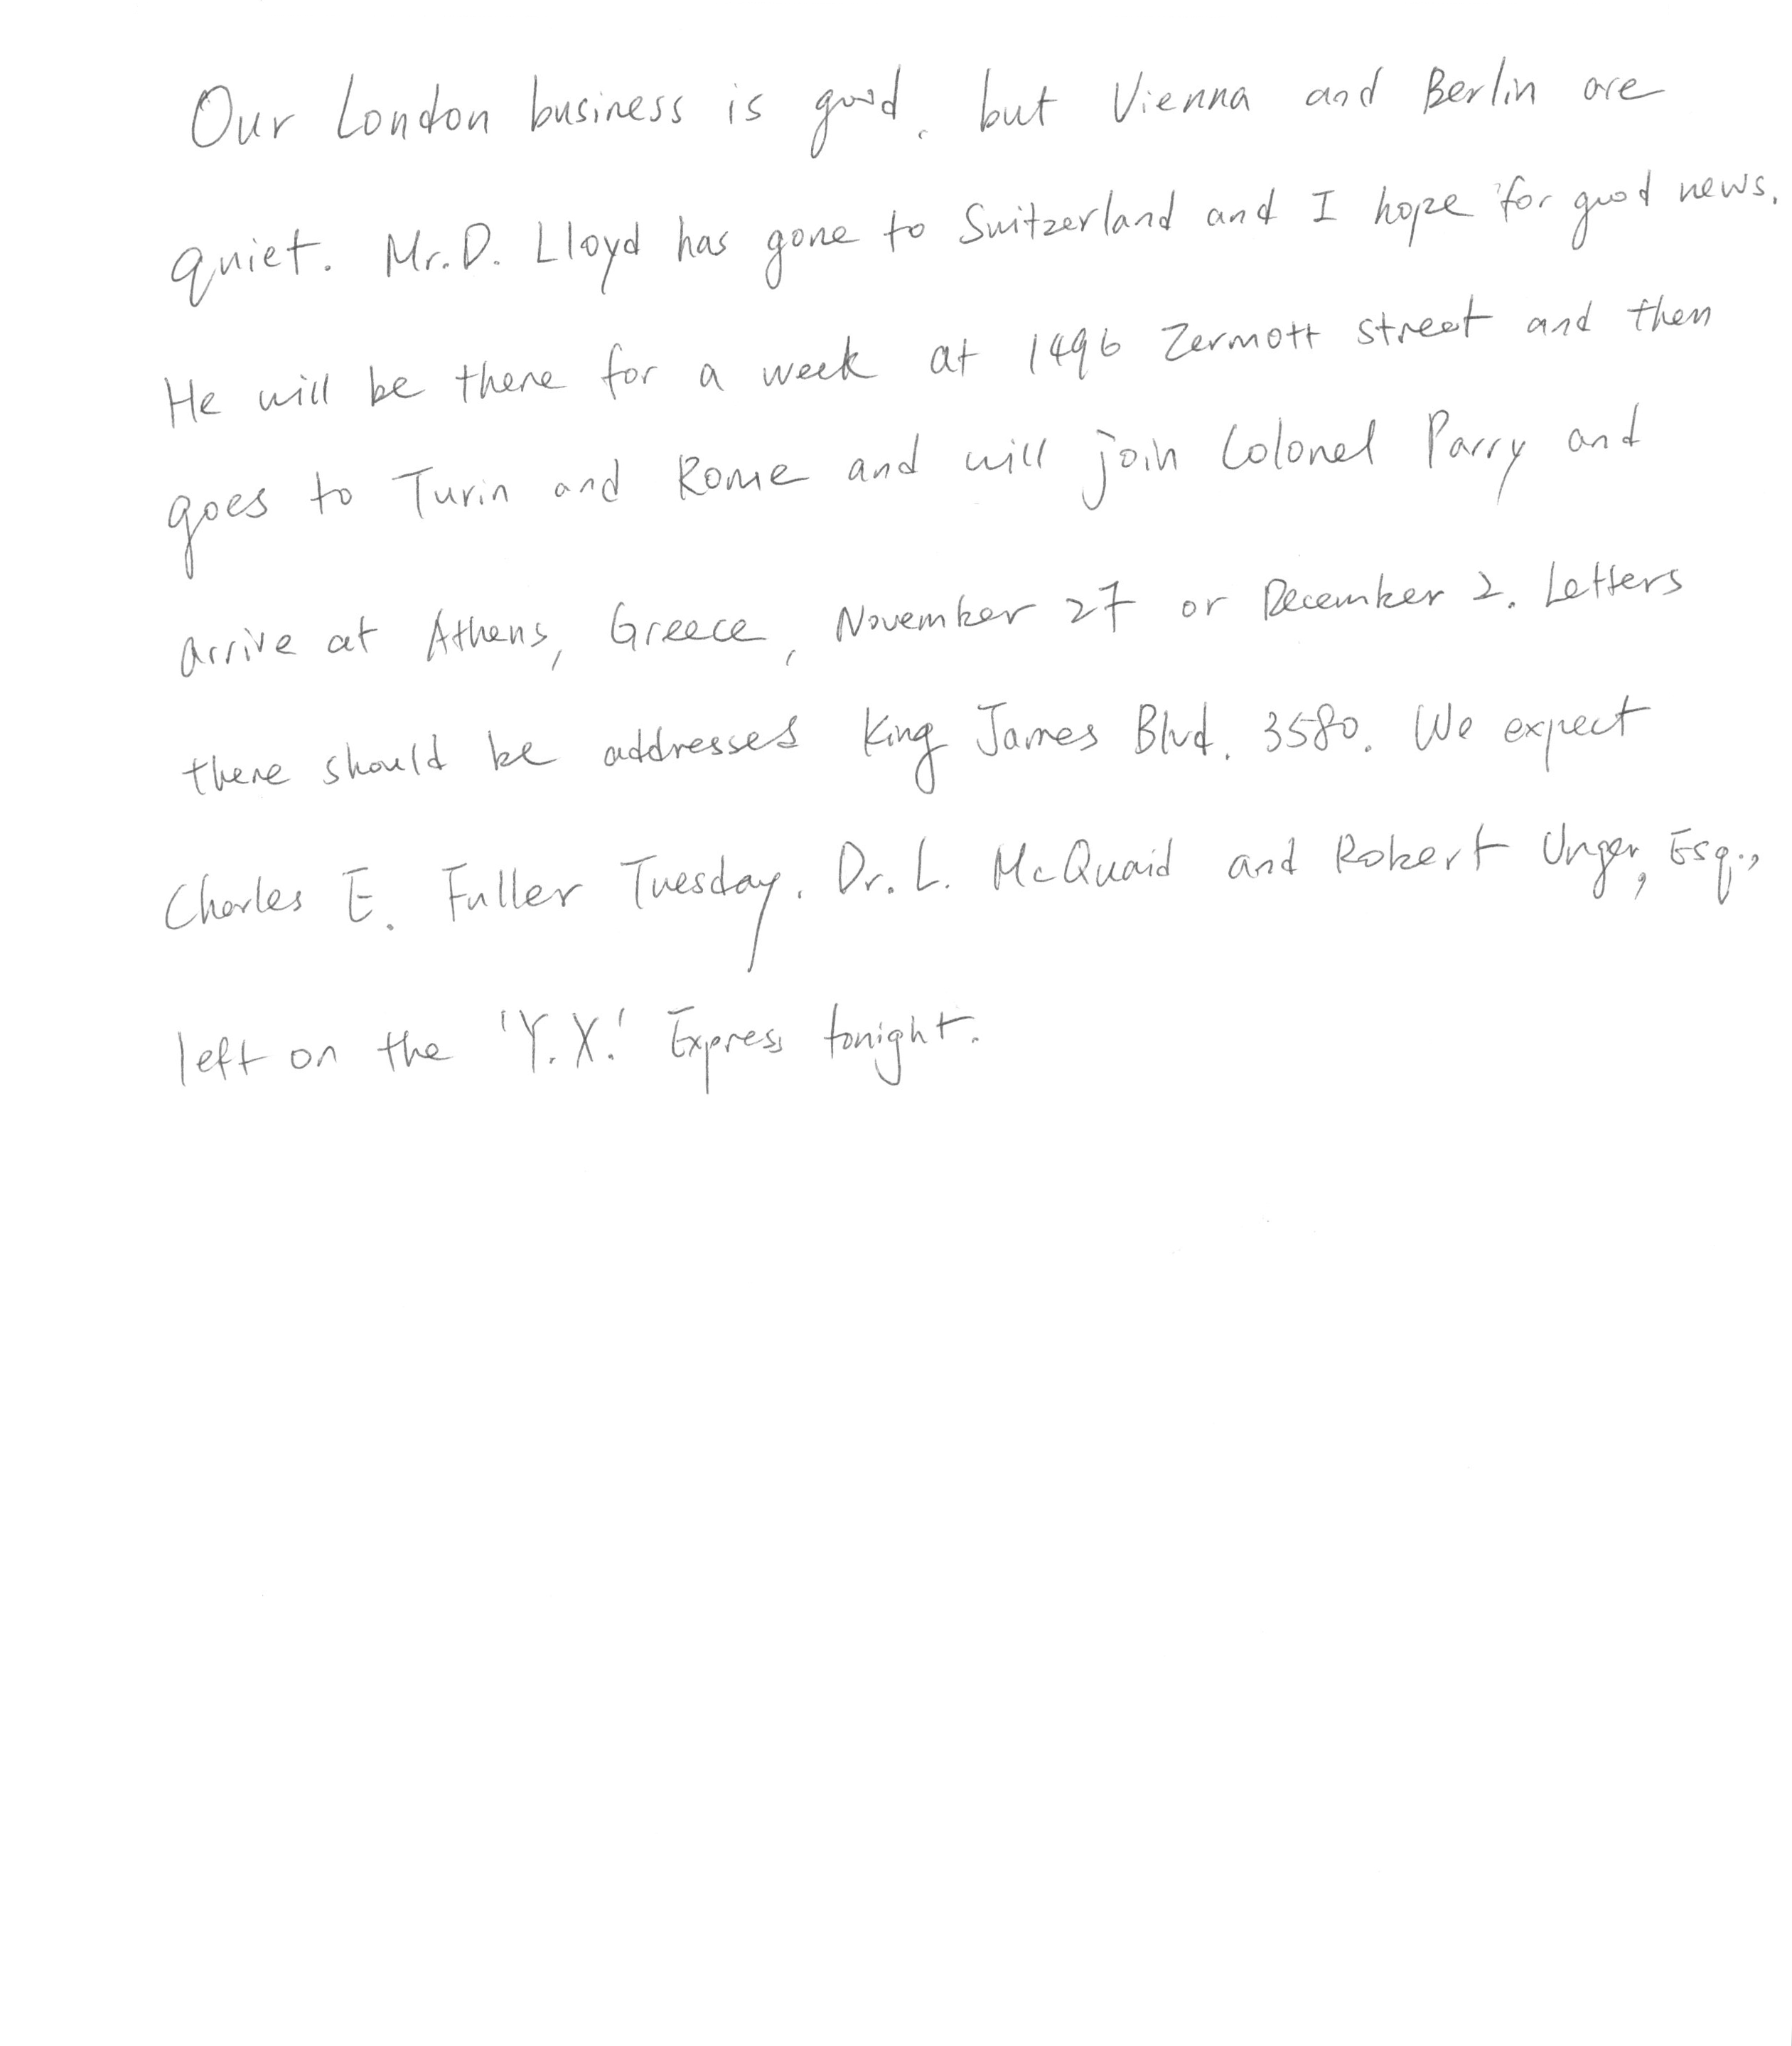 Our London business is good, but Vienna and Berlin are
quiet. Mr. D. Lloyd has gone to Switzerland and I hope for good news.
He will be there for a week at 1496 Zermott street and then
goes to Turin and Rome and will join Colonel Parry and
arrive at Athens, Greece, November 27 or December 2. Letters
there should be addresses King James Blvd. 3580. We expect
Charles E. Fuller Tuesday. Dr. L. McQuaid and Robert Unger, Esq.,
left on the 'Y.X.' Express tonight.